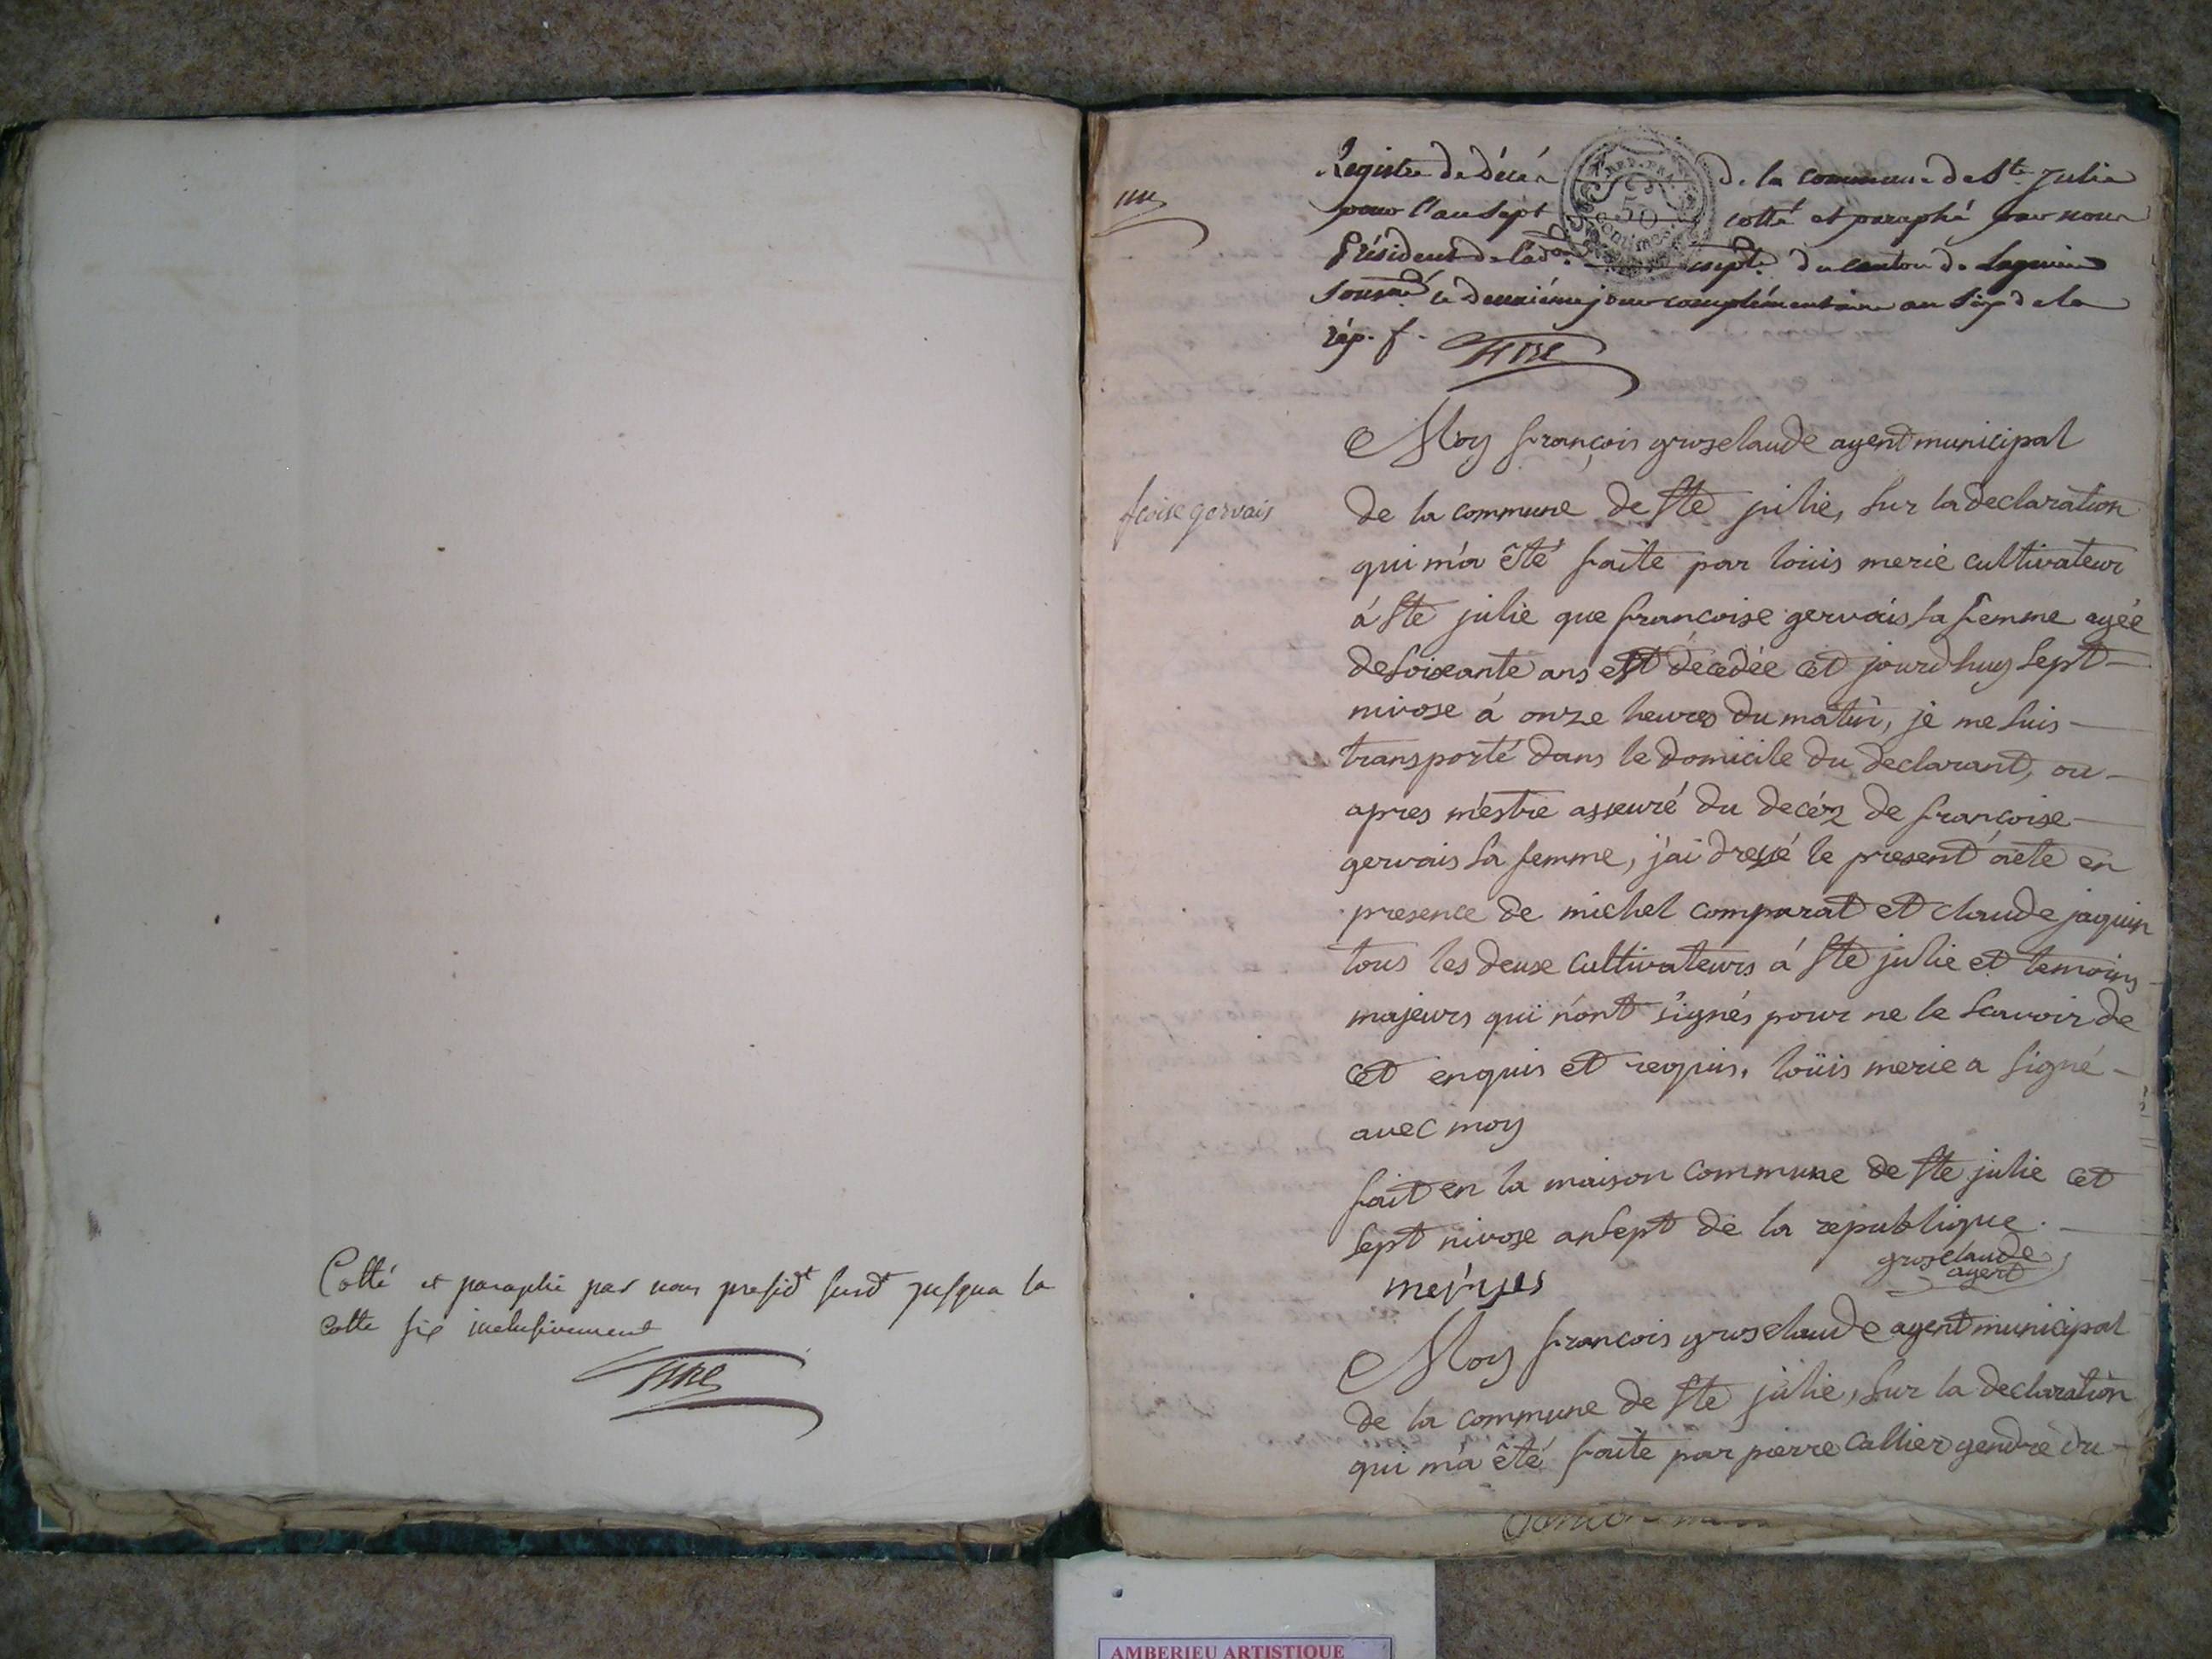 Cotté et paraphé par nous presidt susdt jusqua la
cotte six inclusivement
Registre de décès de la commune de Ste Julie
pour l'an sept cotté et paraphé par nous
Président de l'adon du canton de Lagnieu
soussé le deuxième jour complémentaire an six de la
rép. f.
REP. FRA
50
Centimes
Moy françois groselaude agent municipal
de la commune de Ste julie, sur la declaration
fcoise gervais
qui m'a êté faite par loüis merie cultivateur
á Ste julie que francoise gervais sa femme agée
de soixante ans est décedée cet jourdhuy sept
nivose á onze heures du matin, je me suis
transporté dans le domicile du declarant, ou
apres m'estre asseuré du decéz de françoise
gervais sa femme, j'ai dressé le present acte en
presence de michel comparat et claude jaquin
tous les deux cultivateurs á Ste julie et temoins
majeurs qui n'ont signés pour ne le scavoir de
cet enquis et requis. loüis merie a signé
avec moy
fait en la maison commune de Ste julie cet
sept nivose an sept de la republique.
groselaude
agent
Moy francois groselaude agent municipal
de la commune de Ste julie, sur la declaration
qui m'a êté faite par pierre Callier gendre du
AMBERIEU ARTISTIQUE